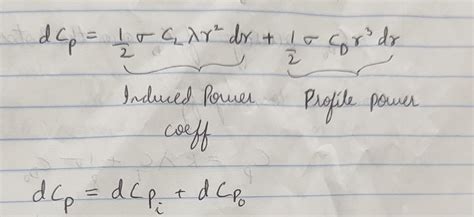 dCp = 1/2 σ C_L λ r² dr + 1/2 σ C_D r³ dr
Induced Power Profile power
coeff
dCp = dCp_i + dCp_o